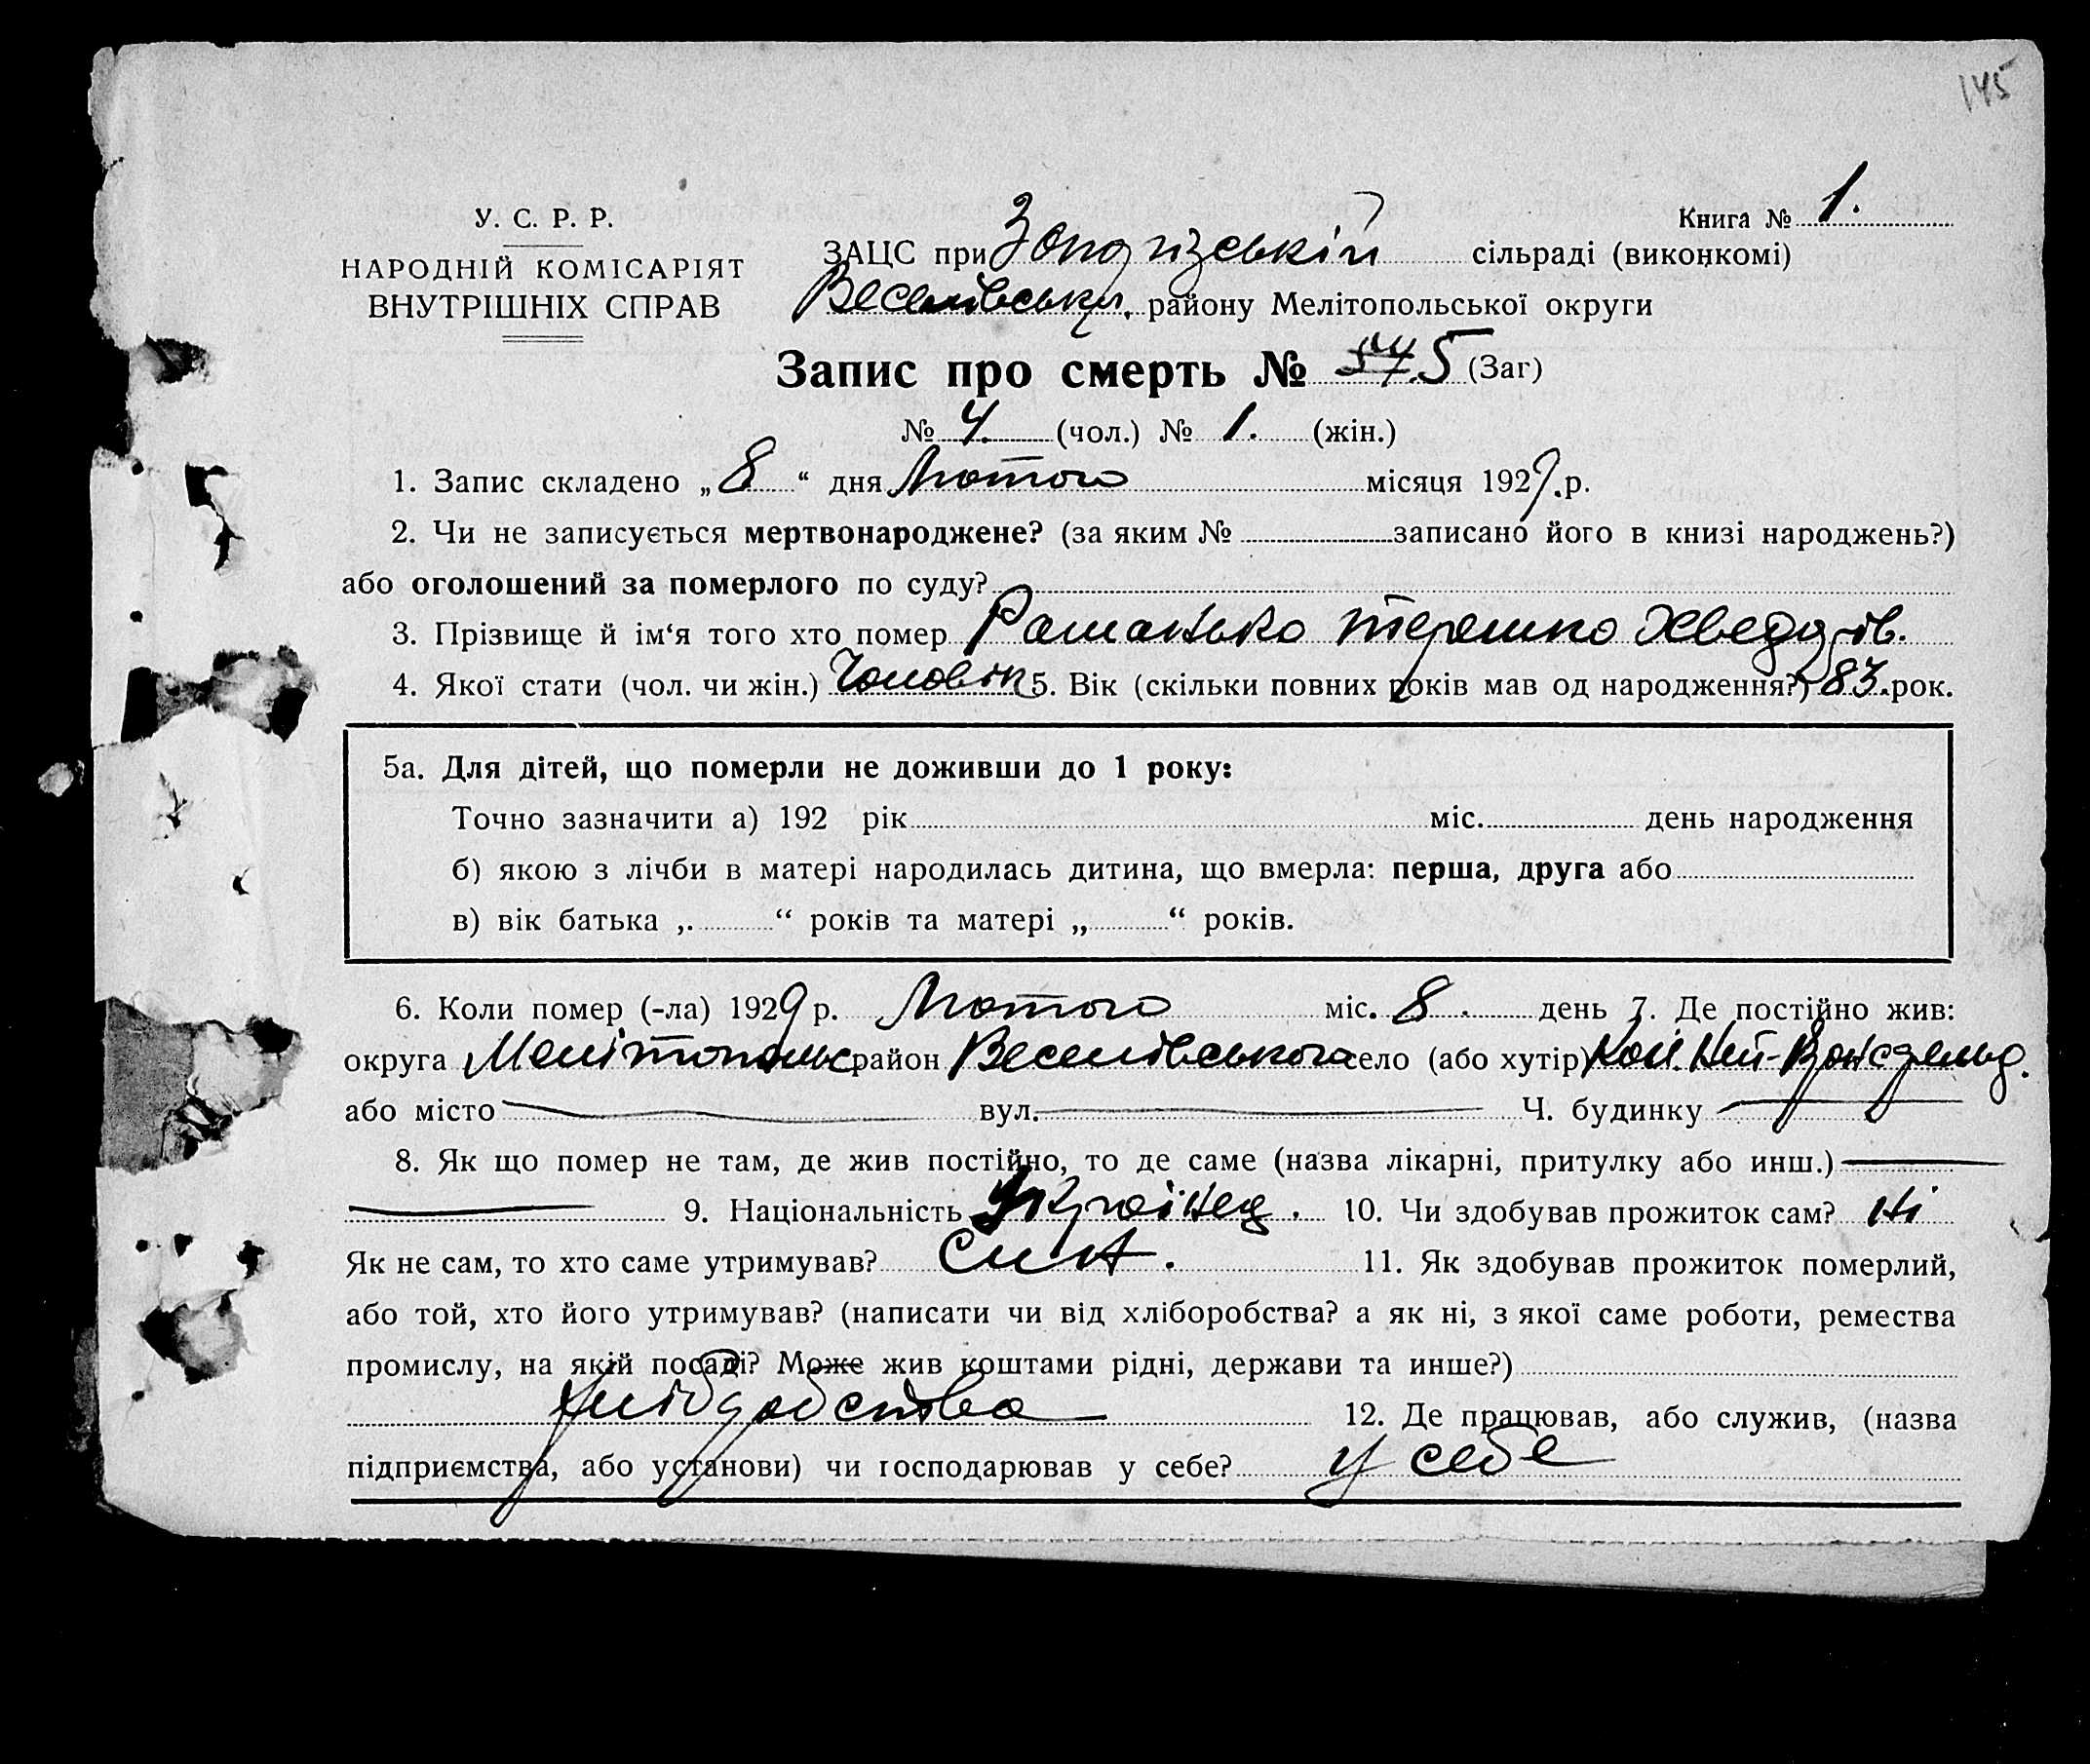 145
У. С. Р. Р.
НАРОДНІЙ КОМІСАРІЯТ
ВНУТРІШНІХ СПРАВ
Книга № 1.
ЗАЦС при сільраді (виконкомі)
Веселівськ. району Мелітопольської округи
Запис про смерть № 5 (Заг)
№ 4 (чол.) № 1. (жін.)
1. Запис складено „8“ дня Лютого місяця 1929.р.
2. Чи не записується мертвонароджене? (за яким № записано його в книзі народжень?)
або оголошений за померлого по суду?
3. Прізвище й ім‘я того хто помер Рашанько Терешко Хведорів.
4. Якої стати (чол. чи жін.) Чоловік 5. Вік (скільки повних років мав од народження?) 83.рок.
5а. Для дітей, що померли не доживши до 1 року:
Точно зазначити а) 192 рік міс. день народження
б) якою з лічби в матері народилась дитина, що вмерла: перша, друга або
в) вік батька „ “ років та матері „ “ років.
6. Коли помер (-ла) 1929 р. Лютого міс. 8. день 7. Де постійно жив:
округа Мелітопольс район Веселівського село (або хутір) Кол. Ней-
або місто вул. Ч. будинку
8. Як що помер не там, де жив постійно, то де саме (назва лікарні, притулку або инш.)
9. Національність Українец. 10. Чи здобував прожиток сам? Ні
Як не сам, то хто саме утримував? Син. 11. Як здобував прожиток померлий,
або той, хто його утримував? (написати чи від хліборобства? а як ні, з якої саме роботи, ремества
промислу, на якій посаді? Може жив коштами рідні, держави та инше?)
Хліборобства 12. Де працював, або служив, (назва
підприємства, або установи) чи господарював у себе? У себе